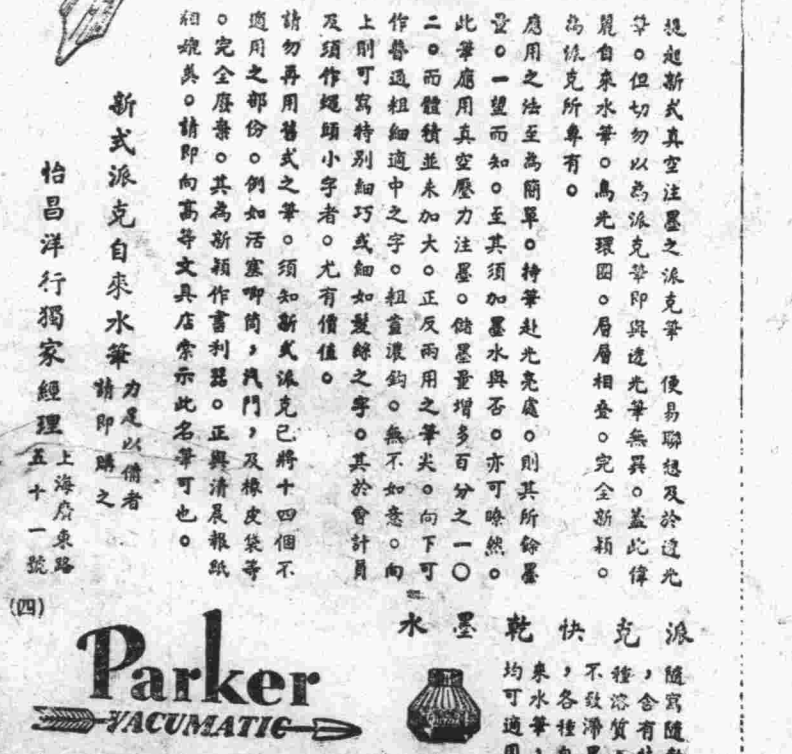 提起新式真空注墨之派克筆 便易聯想及於透光
筆。但切勿以為派克筆即與透光筆無異。蓋此偉
麗自來水筆。烏光環圈。層層相叠。完全新穎。
為派克所專有。
應用之法至為簡單。持筆赴光亮處。則其所餘墨
量。一望而知。至其須加墨水與否。亦可瞭然。
此筆應用真空壓力注墨。儲墨量增多百分之一〇
二。而體積並未加大。正反兩用之筆尖。向下可
作普通粗細適中之字。粗畫濃鈎。無不如意。向
上則可寫特別細巧或細如髮絲之字。其於會計員
及須作蠅頭小字者。尤有價值。
請勿再用舊式之筆。須知新式派克已將十四個不
適用之部份。例如活塞唧筒，汽門，及橡皮袋等
。完全廢棄。其為新穎作書利器。正與清晨報紙
相媲美。請即向高等文具店索示此名筆可也。
新式派克自來水筆
力足以備者
請即購之
怡昌洋行獨家經理
上海廣東路
五十一號
(四)
Parker
VACUMATIC
派克快乾墨水
隨寫隨
，含有
種溶質
不致滯
，各種
來水筆，
均可適用
Quink